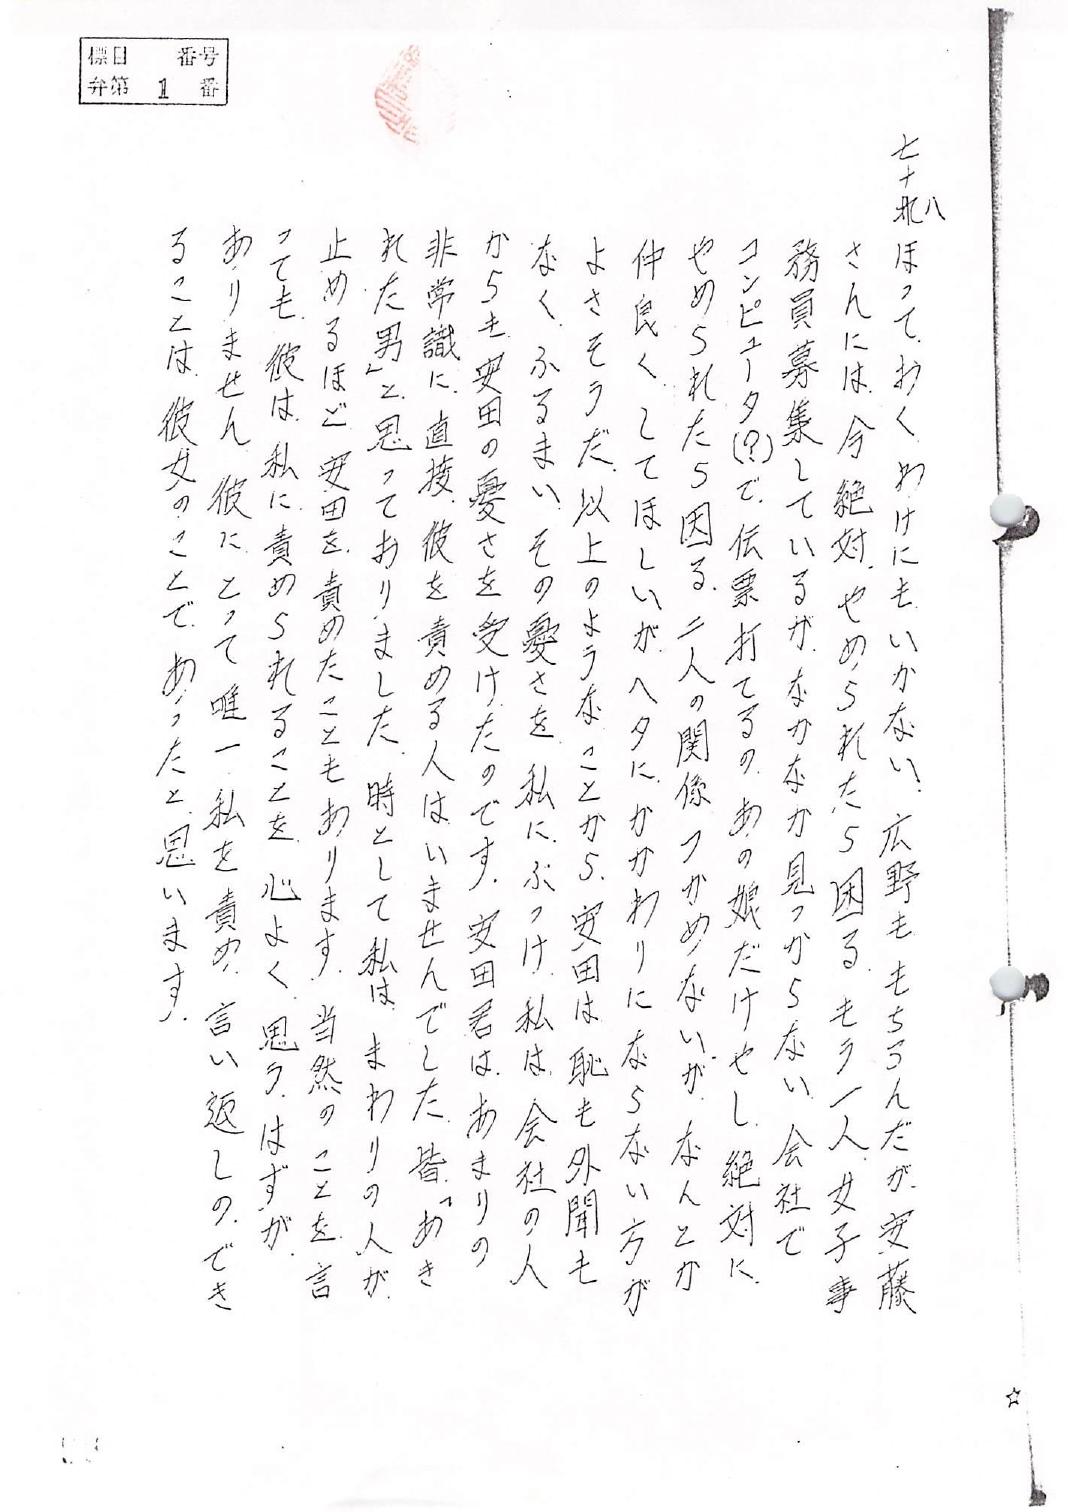 標目 番号
弁第 1 番
七十八
ほっておくわけにもいかない、広野ももちろんだが、安藤
さんには、今絶対、やめられたら困る、もう一人、女子事
務員募集しているが、なかなか見つからない、会社で
コンピュータ(?)で、伝票打てるの、あの娘だけやし、絶対に、
やめられたら困る、二人の関係つかめないが、なんとか
仲良く、してほしいが、ヘタに、かかわりにならない方が
よさそうだ、以上のようなことから、安田は恥も外聞も
なく、ふるまい、その憂さを、私に、ぶつけ、私は、会社の人
からも、安田の憂さを受けたのです。安田君は、あまりの
非常識に、直接、彼を責める人はいませんでした、皆、「あき
れた男」と、思っておりました、時として私は、まわりの人が、
止めるほど、安田を、責めたこともあります。当然のことを、言
っても、彼は、私に、責められることを、心よく、思う、はずが、
ありません、彼に、とって唯一、私を責め、言い返しの、でき
ることは、彼女のことで、あったと、思います。